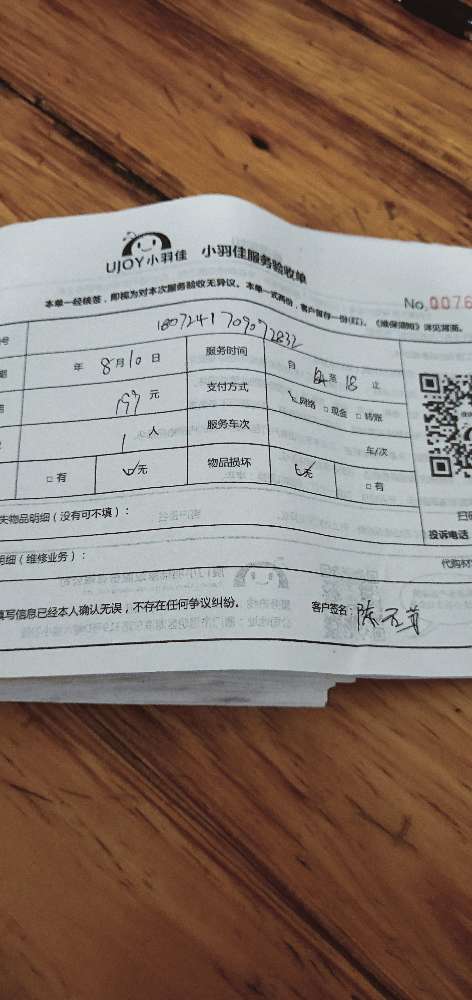 UJOY小羽佳 小羽佳服务验收单
本单一经核签，即视为对本次服务验收无异议。本单一式两份，客户留存一份(红)。《维保须知》详见背面。
No.0076
号 1807241709072832
期 年 8月10日 服务时间 自 14 至 18 止
199 元 支付方式 网络 □ 现金 □ 转账
1 人 服务车次 车/次
□ 有 无 物品损坏 无 □ 有
扫码
失物品明细（没有可不填）：
投诉电话
明细（维修业务）：
代购材
填写信息已经本人确认无误，不存在任何争议纠纷。 客户签名：陈